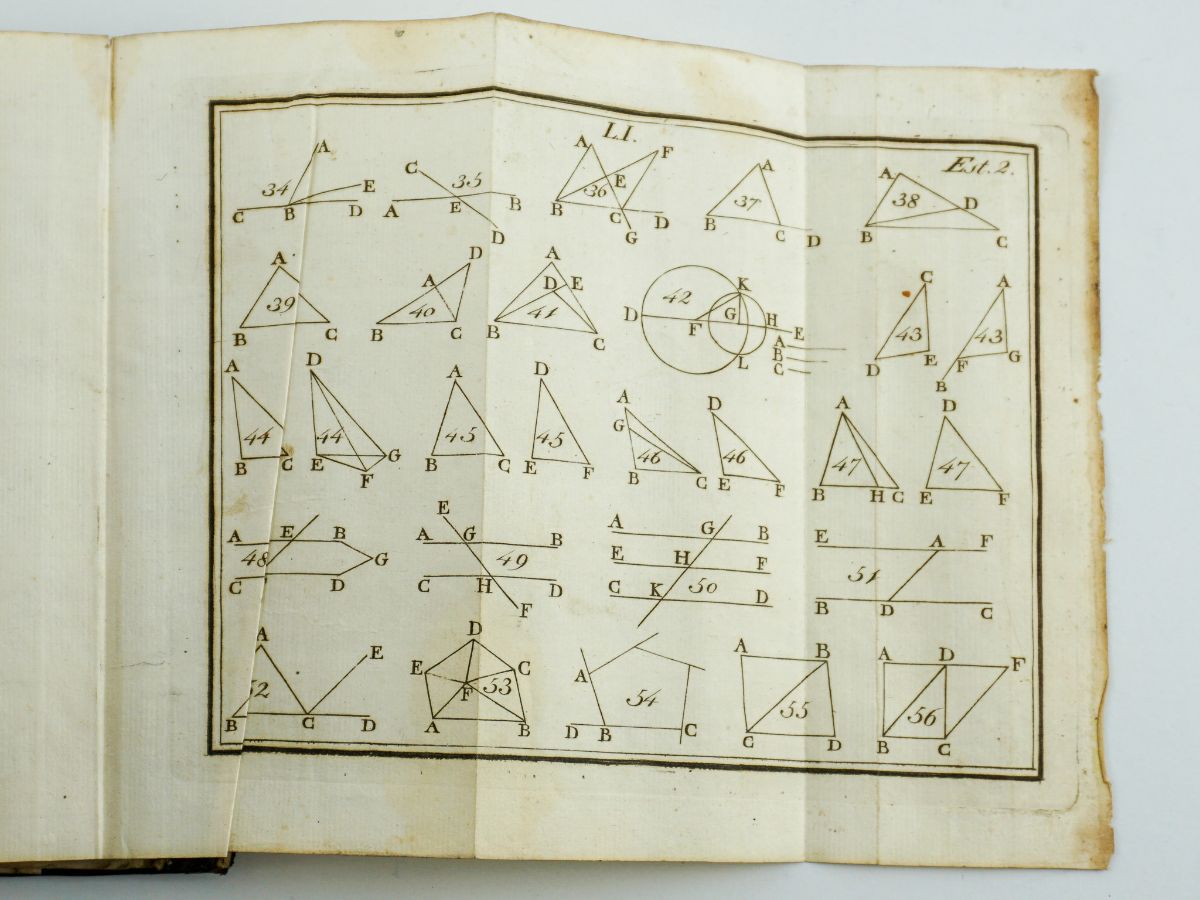 L I.
Est. 2.
A
34
E
C
B
D
C
35
A
E
B
D
A
F
36
E
B
C
D
G
A
37
B
C
D
A
38
D
B
C
A
39
B
C
D
A
40
B
C
A
D
E
41
B
C
42
K
D
F
G
H
E
A
B
C
L
C
43
D
E
A
43
F
G
B
A
44
B
C
D
44
E
G
F
A
45
B
C
D
45
E
F
A
G
46
B
C
D
46
E
F
A
47
B
H
C
D
47
E
F
A
E
B
48
G
C
D
E
A
G
B
49
C
H
D
F
A
G
B
E
H
F
50
C
K
D
E
A
F
51
B
D
C
A
E
52
B
C
D
D
E
C
F
53
A
B
A
54
D
B
C
A
B
55
C
D
A
D
F
56
B
C